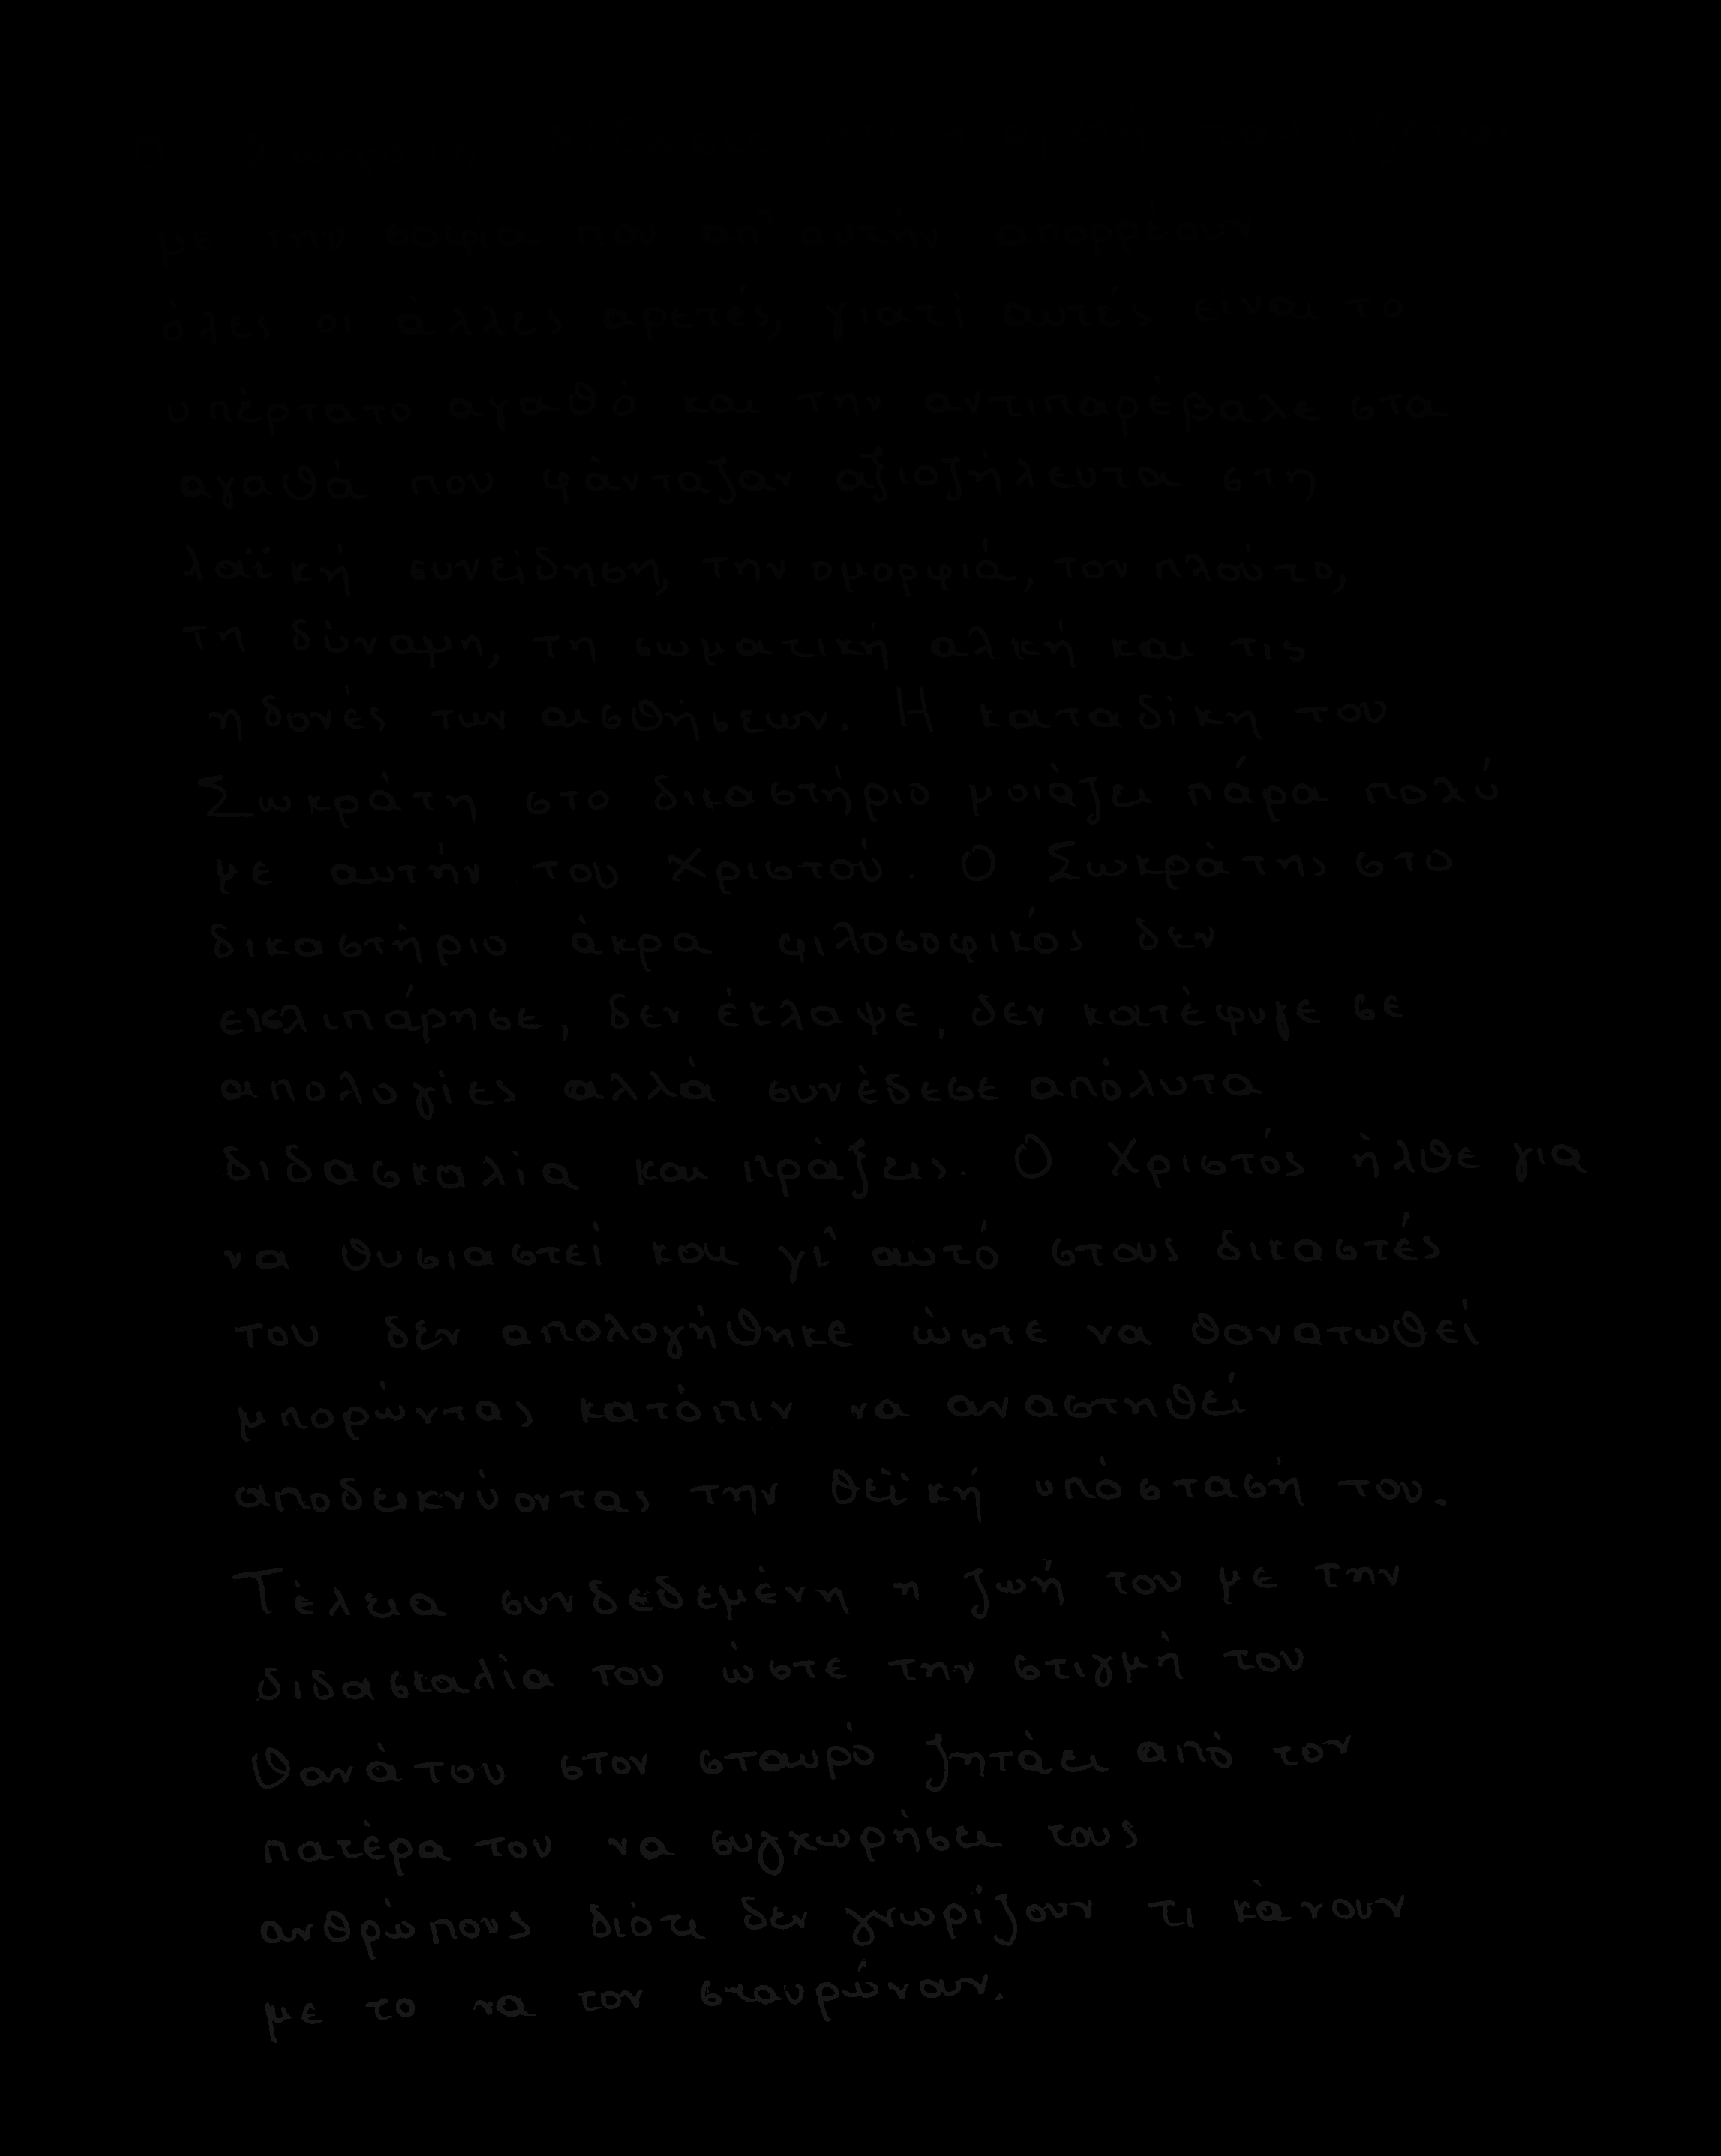 με την σοφία που απ' αυτήν απορρέουν
όλες οι άλλες αρετές, γιατί αυτές είναι το
υπέρτατο αγαθό και την αντιπαρέβαλε στα
αγαθά που φάνταζαν αξιοζήλευτα στη
λαϊκή συνείδηση, την ομορφιά, τον πλούτο,
τη δύναμη, τη σωματική αλκή και τις
ηδονές των αισθήσεων. Η καταδίκη του
Σωκράτη στο δικαστήριο μοιάζει πάρα πολύ
με αυτήν του Χριστού. Ο Σωκράτης στο
δικαστήριο άκρα φιλοσοφικός δεν
εκλιπάρησε, δεν έκλαψε, δεν κατέφυγε σε
απολογίες αλλά συνέδεσε απόλυτα
διδασκαλία και πράξεις. Ο Χριστός ήλθε για
να θυσιαστεί και γι' αυτό στους δικαστές
του δεν απολογήθηκε ώστε να θανατωθεί
μπορώντας κατόπιν να αναστηθεί
αποδεικνύοντας την θεϊκή υπόστασή του.
Τέλεια συνδεδεμένη η ζωή του με την
διδασκαλία του ώστε την στιγμή του
θανάτου στον σταυρό ζητάει από τον
πατέρα του να συγχωρήσει τους
ανθρώπους διότι δεν γνωρίζουν τι κάνουν
με το να τον σταυρώνουν.